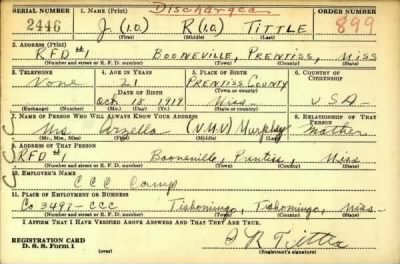 Discharged
SERIAL NUMBER 1. NAME (Print) ORDER NUMBER
2446 J. (I.O.) R (I.O.) TITTLE 899
(First) (Middle) (Last)
2. ADDRESS (Print)
RFD #1 BOONEVILLE, PRENTISS, MISS
(Number and street or R. F. D. number) (Town) (County) (State)
3. TELEPHONE 4. AGE IN YEARS 5. PLACE OF BIRTH 6. COUNTRY OF CITIZENSHIP
None 21 PRENTISS COUNTY
DATE OF BIRTH (Town or county)
Oct 18 1919 Miss USA
(Exchange) (Number) (Mo.) (Day) (Yr.) (State or country)
7. NAME OF PERSON WHO WILL ALWAYS KNOW YOUR ADDRESS 8. RELATIONSHIP OF THAT PERSON
Mrs. Arzella (N.M.N) Murphy Mother
(Mr., Mrs., Miss) (First) (Middle) (Last)
9. ADDRESS OF THAT PERSON
RFD #1 Booneville, Prentiss, Miss
(Number and street or R. F. D. number) (Town) (County) (State)
10. EMPLOYER'S NAME
CCC Camp
11. PLACE OF EMPLOYMENT OR BUSINESS
Co 3497-CCC Tishomingo, Tishomingo, Miss.
(Number and street or R. F. D. number) (Town) (County) (State)
I AFFIRM THAT I HAVE VERIFIED ABOVE ANSWERS AND THAT THEY ARE TRUE.
REGISTRATION CARD J R Tittle
D. S. S. Form 1 (over) (Registrant's signature)